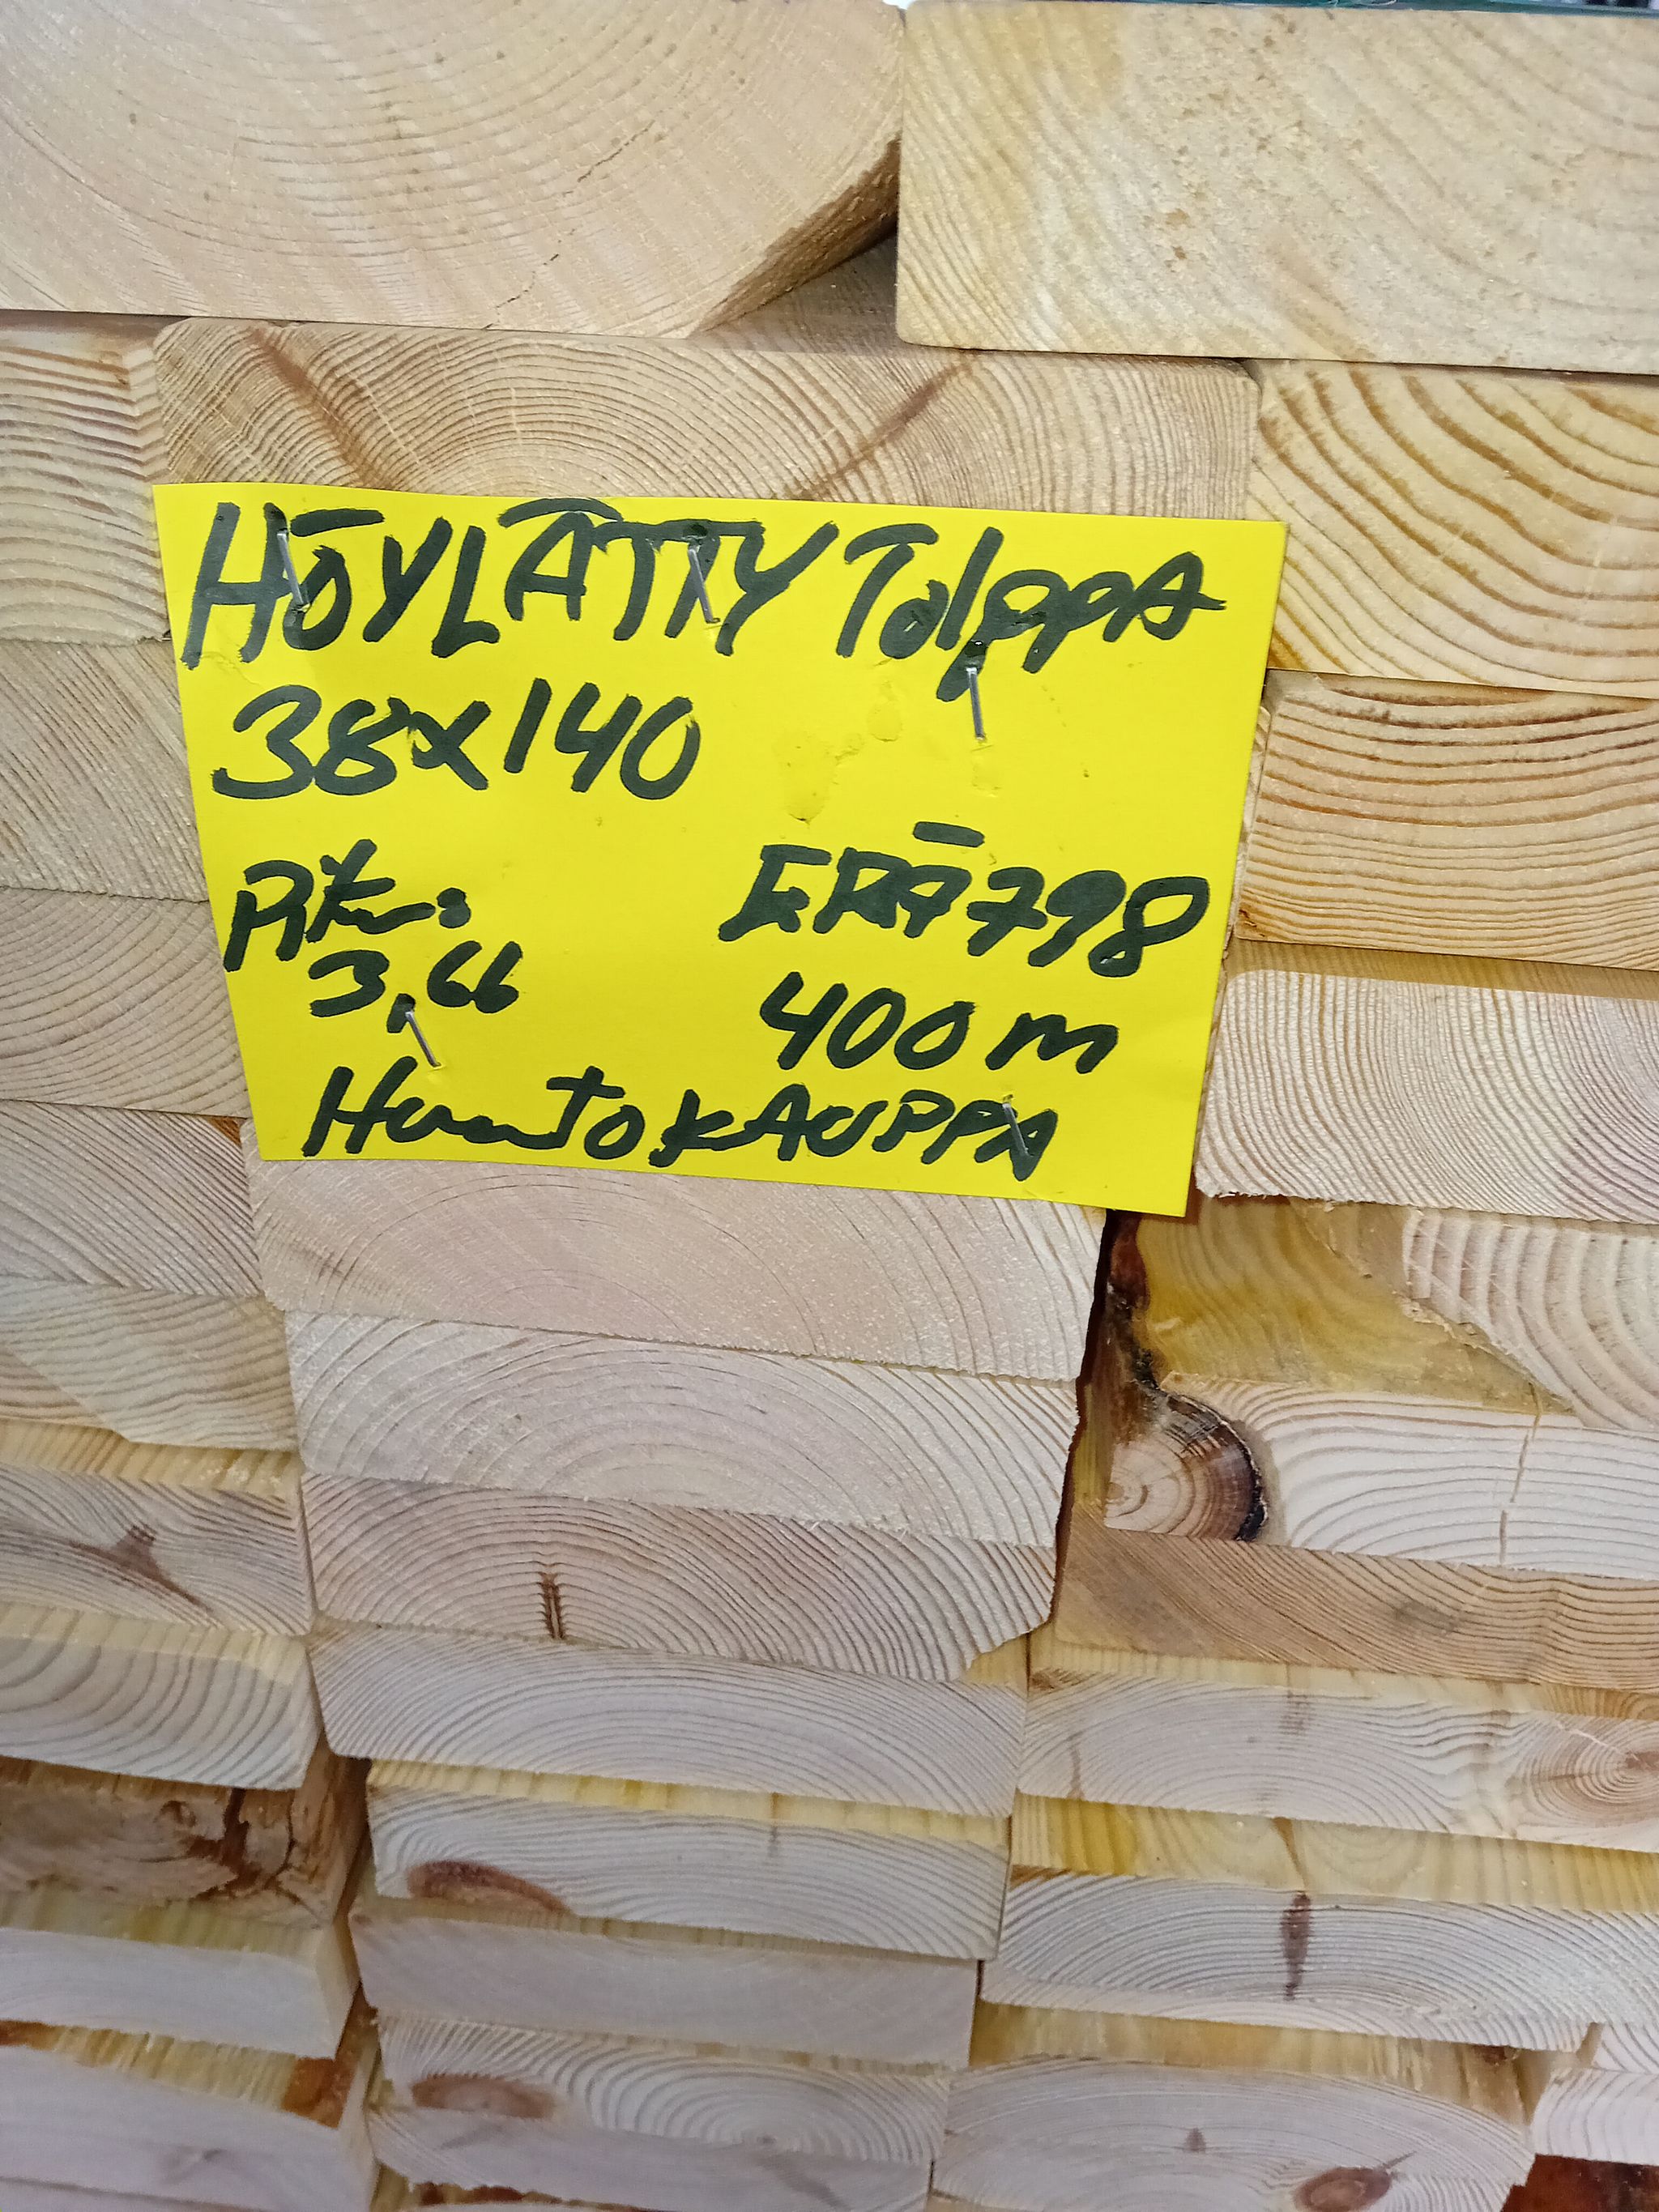 HÖYLÄTTY TolppA
38x140
Pituus:
3,66
ERÄ 798
400 m
HuutokAUPPA